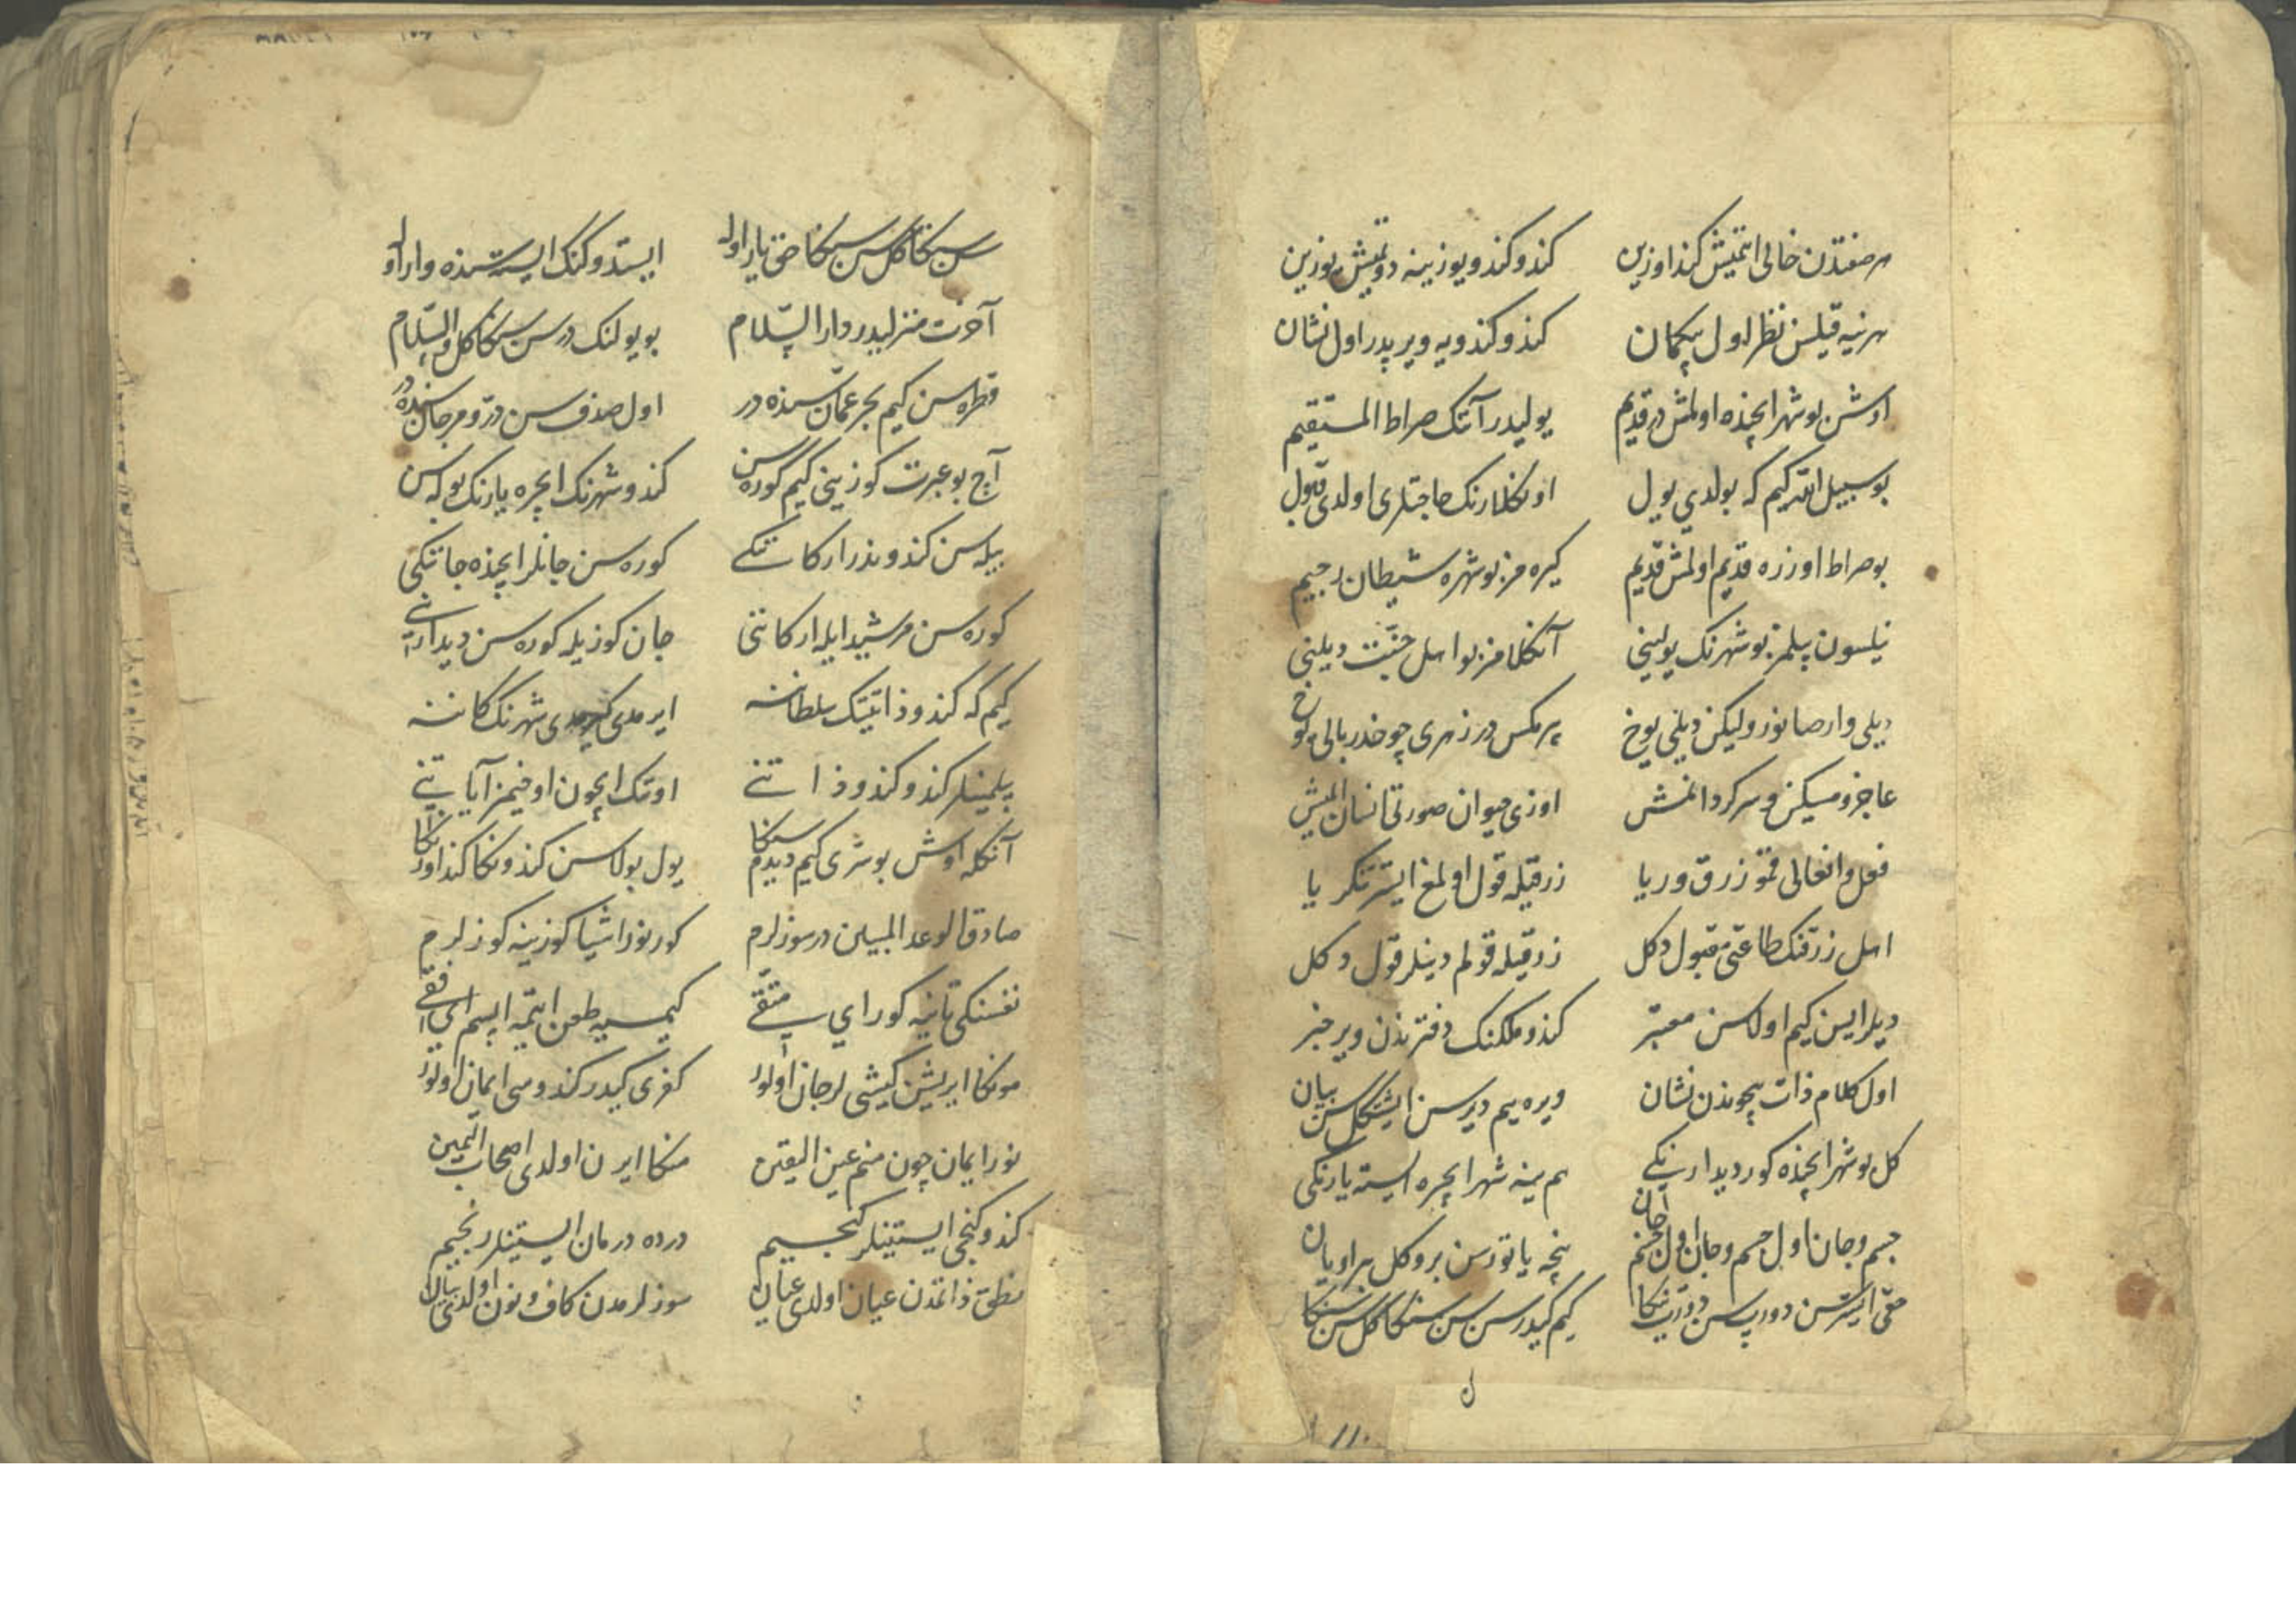 هر صفتدن خالی ایتمیش کند اوزین کندو کندو یوزینه دوتمیش یوزین
هر نیه قیلسن نظر اول بیکمان کندو کندویه ویر یدر اول نشان
اوش بو شهر ایچنده اولمش در قدیم یولیدر آنک صراط المستقیم
بو سبیل الله کیم که بولدی یول اونکلارنک حاجتلری اولدی قبول
بو صراط اوزره قدیم اولمش قدیم کیره مز بو شهره شیطان رجیم
نیلسون بیلمز بو شهرنک یولینی آنکلامز بو اهل جنت دیلینی
دیلی وار صانور ولیکن دیلی یوخ پر مکس در زهری چوخدر بالی یوخ
عاجز و مسکین و سرکردانمش اوزی حیوان صورتی انسان ایمیش
فعل و افعالی قمو زرق و ریا زرقیله قول اولمغ ایستر تکریا
اهل زرقنک طاعتی مقبول دکل زرقیله قولم دینلر قول دکل
دیلر ایسن کیم اولاسن معتبر کندو ملکنک دفترندن ویر خبر
اول کلام ذات بیچوندن نشان ویره ییم دیرسن ایشتکل سن بیان
کل بو شهر ایچنده کور دیدارنکی هم ینه شهر ایچره ایسته یارنکی
جسم و جان اول جسم و جان اول جسم جان نیجه یاتورسن برو کل بر اویان
حقی ایسترسن دورپسن دورپ سنکا کیم کیدرسن سن سنکا کل سن سنکا
سن سنکا کل سن سنکا حق یار اولا ایستدوکنک ایستسنده وار اولا
آخرت منزلیدر دار السلام بو یولنک در سن سنکا کل والسلام
قطره سن کیم بحر عمان سنده در اول صدف سن در و مرجان سنده در
آچ بو عبرت کوزینی کیم کوره سن کندو شهرنک ایچره یارنک بوله سن
بیله سن کندوندر ارکاننکی کوره سن جانلر ایچنده جاننکی
کوره سن مرشید ایله ارکاننی جان کوزیله کوره سن دیدارانی
کیم که کندو ذاتینک سلطاننه ایرمدی کیرمدی شهرنک کاننه
بیلمینلر کندو کندو ذاتنی اوتک ایچون اوخیمز آیاتینی
آنکله اوش بو شری کیم دیدم سنکا یول بولاسن کندونکا کند اوزنکا
صادق الوعد المبین در سوزلرم کورنور اشیا کوزینه کوزلرم
نفسنکی تانیه کور ای متقی کیمسیه طعن ایتمه ایسم ای شقی
مونکا ایریشن کیشی لر جان اولور کفری کیدر کندوسی ایمان اولور
نور ایمان چون منم عین الیقین منکا ایرن اولدی اصحاب الیمین
کندو کنجی ایستینلر کنجییم درده درمان ایستینلر رنجییم
نطق ذاتمدن عیان اولدی عیان سوزلرمدن کاف و نون اولدی بیان
ل
۱۱۰